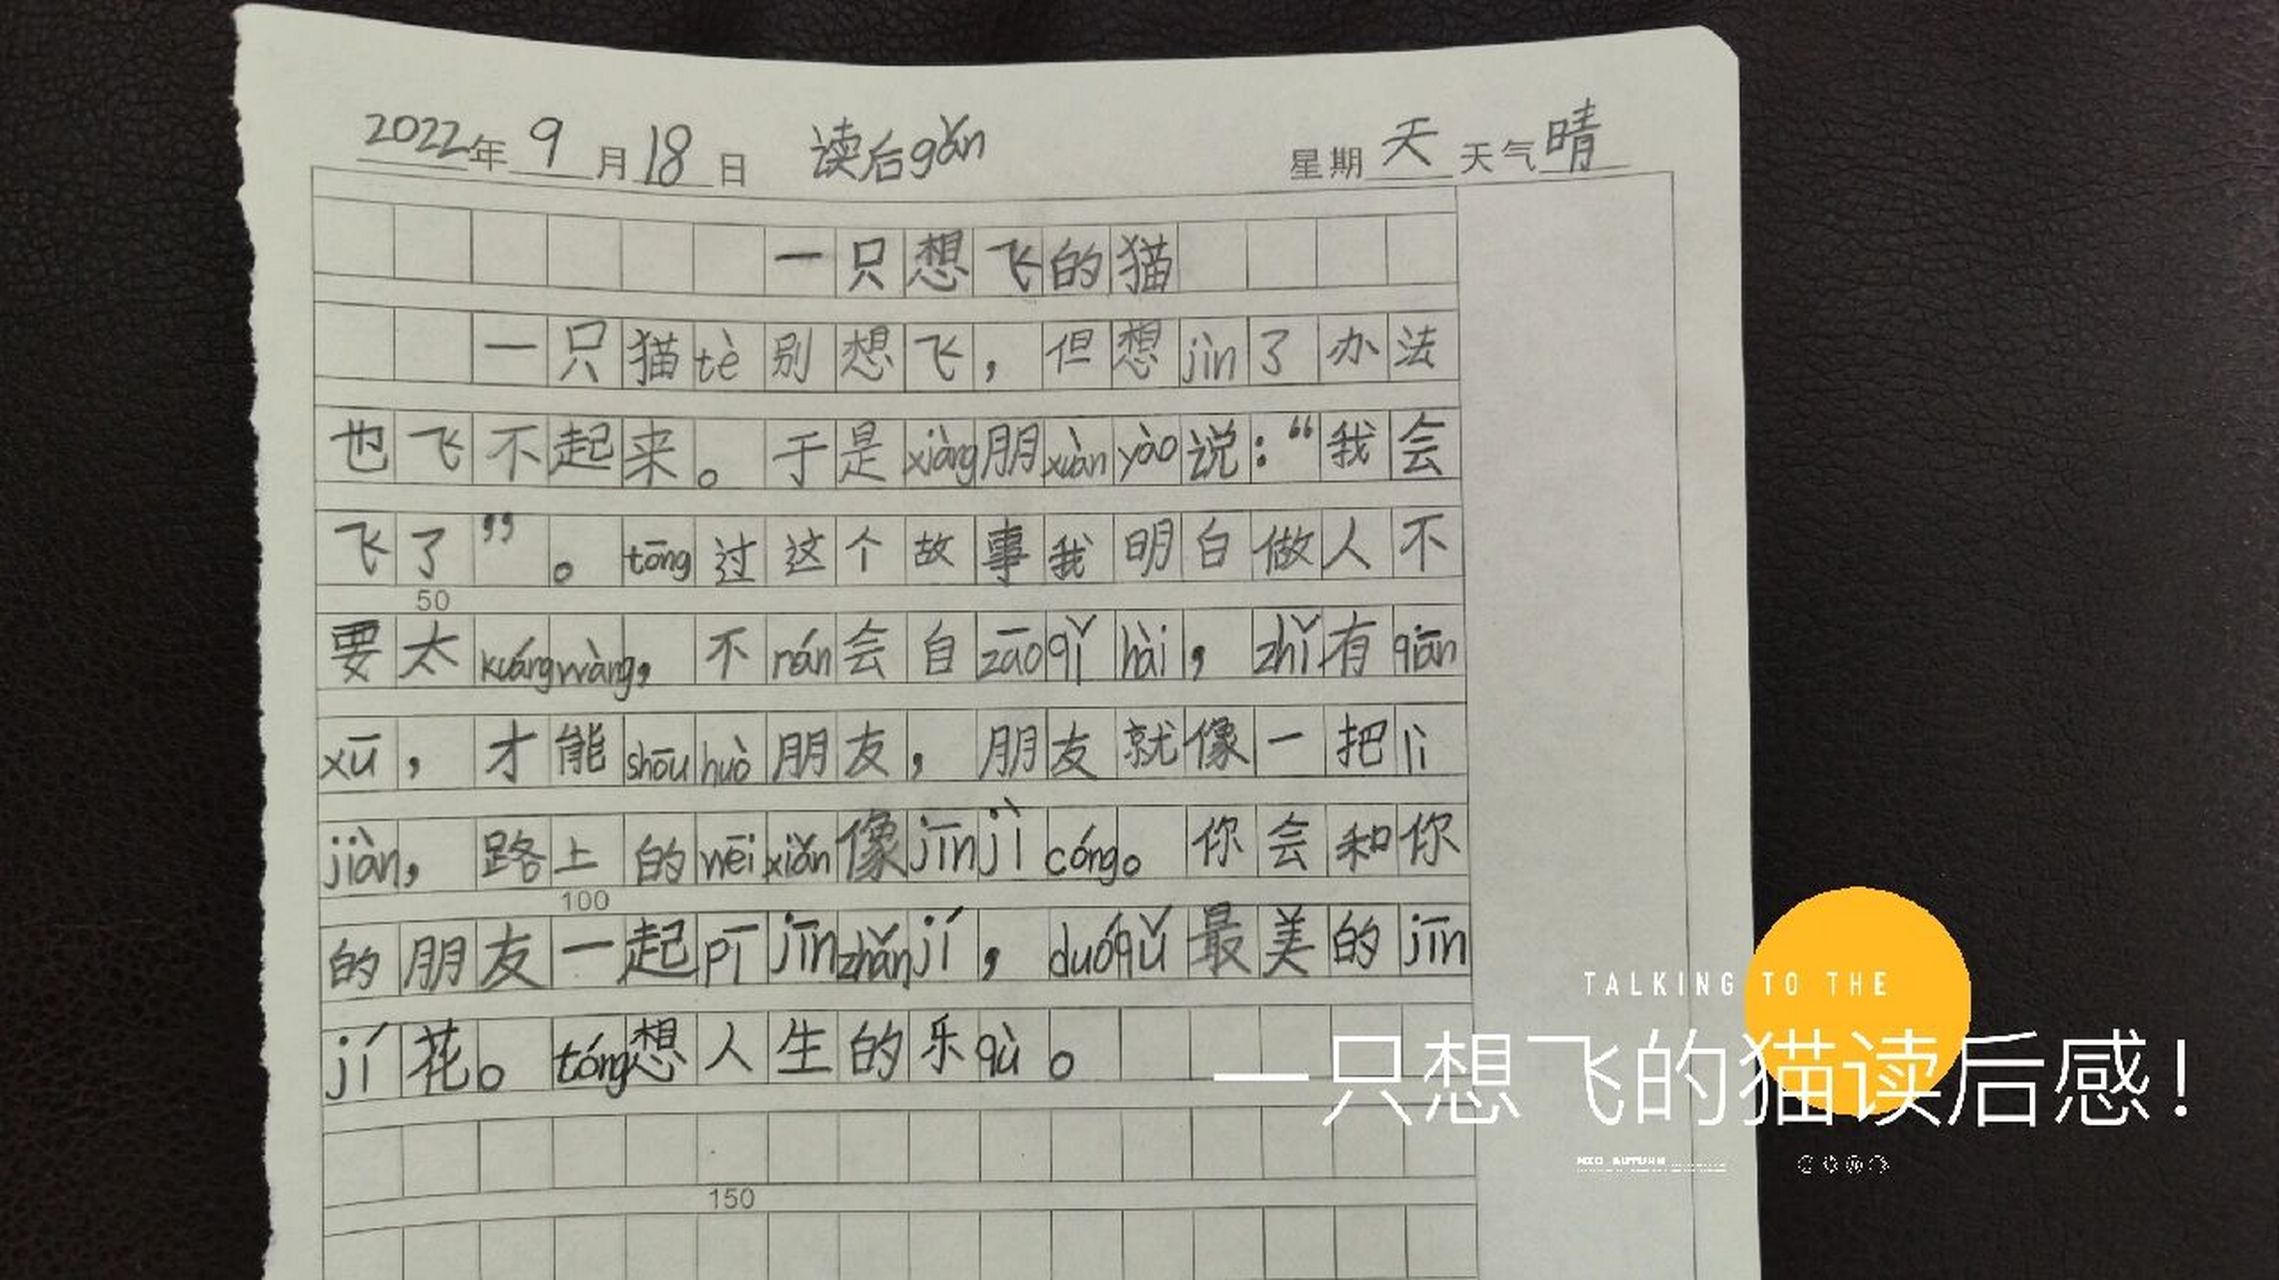 2022年9月18日 读后gǎn 星期天 天气晴
一只想飞的猫
一只猫tè别想飞，但想jìn了办法
也飞不起来。于是xiàng朋xuàn yào说：“我会
飞了”。tōng过这个故事我明白做人不
50
要太kuángwàng，不rán会自zāo qǐ hài，zhǐ有qiān
xū，才能shōu huò朋友，朋友就像一把lì
jiàn，路上的wēi xiǎn像jīn jì cóng。你会和你
100
的朋友一起pī jīn zhǎn jí，duó qǔ最美的jīn
jí花。tóng想人生的乐qù。
150
TALKING TO THE
一只想飞的猫读后感！